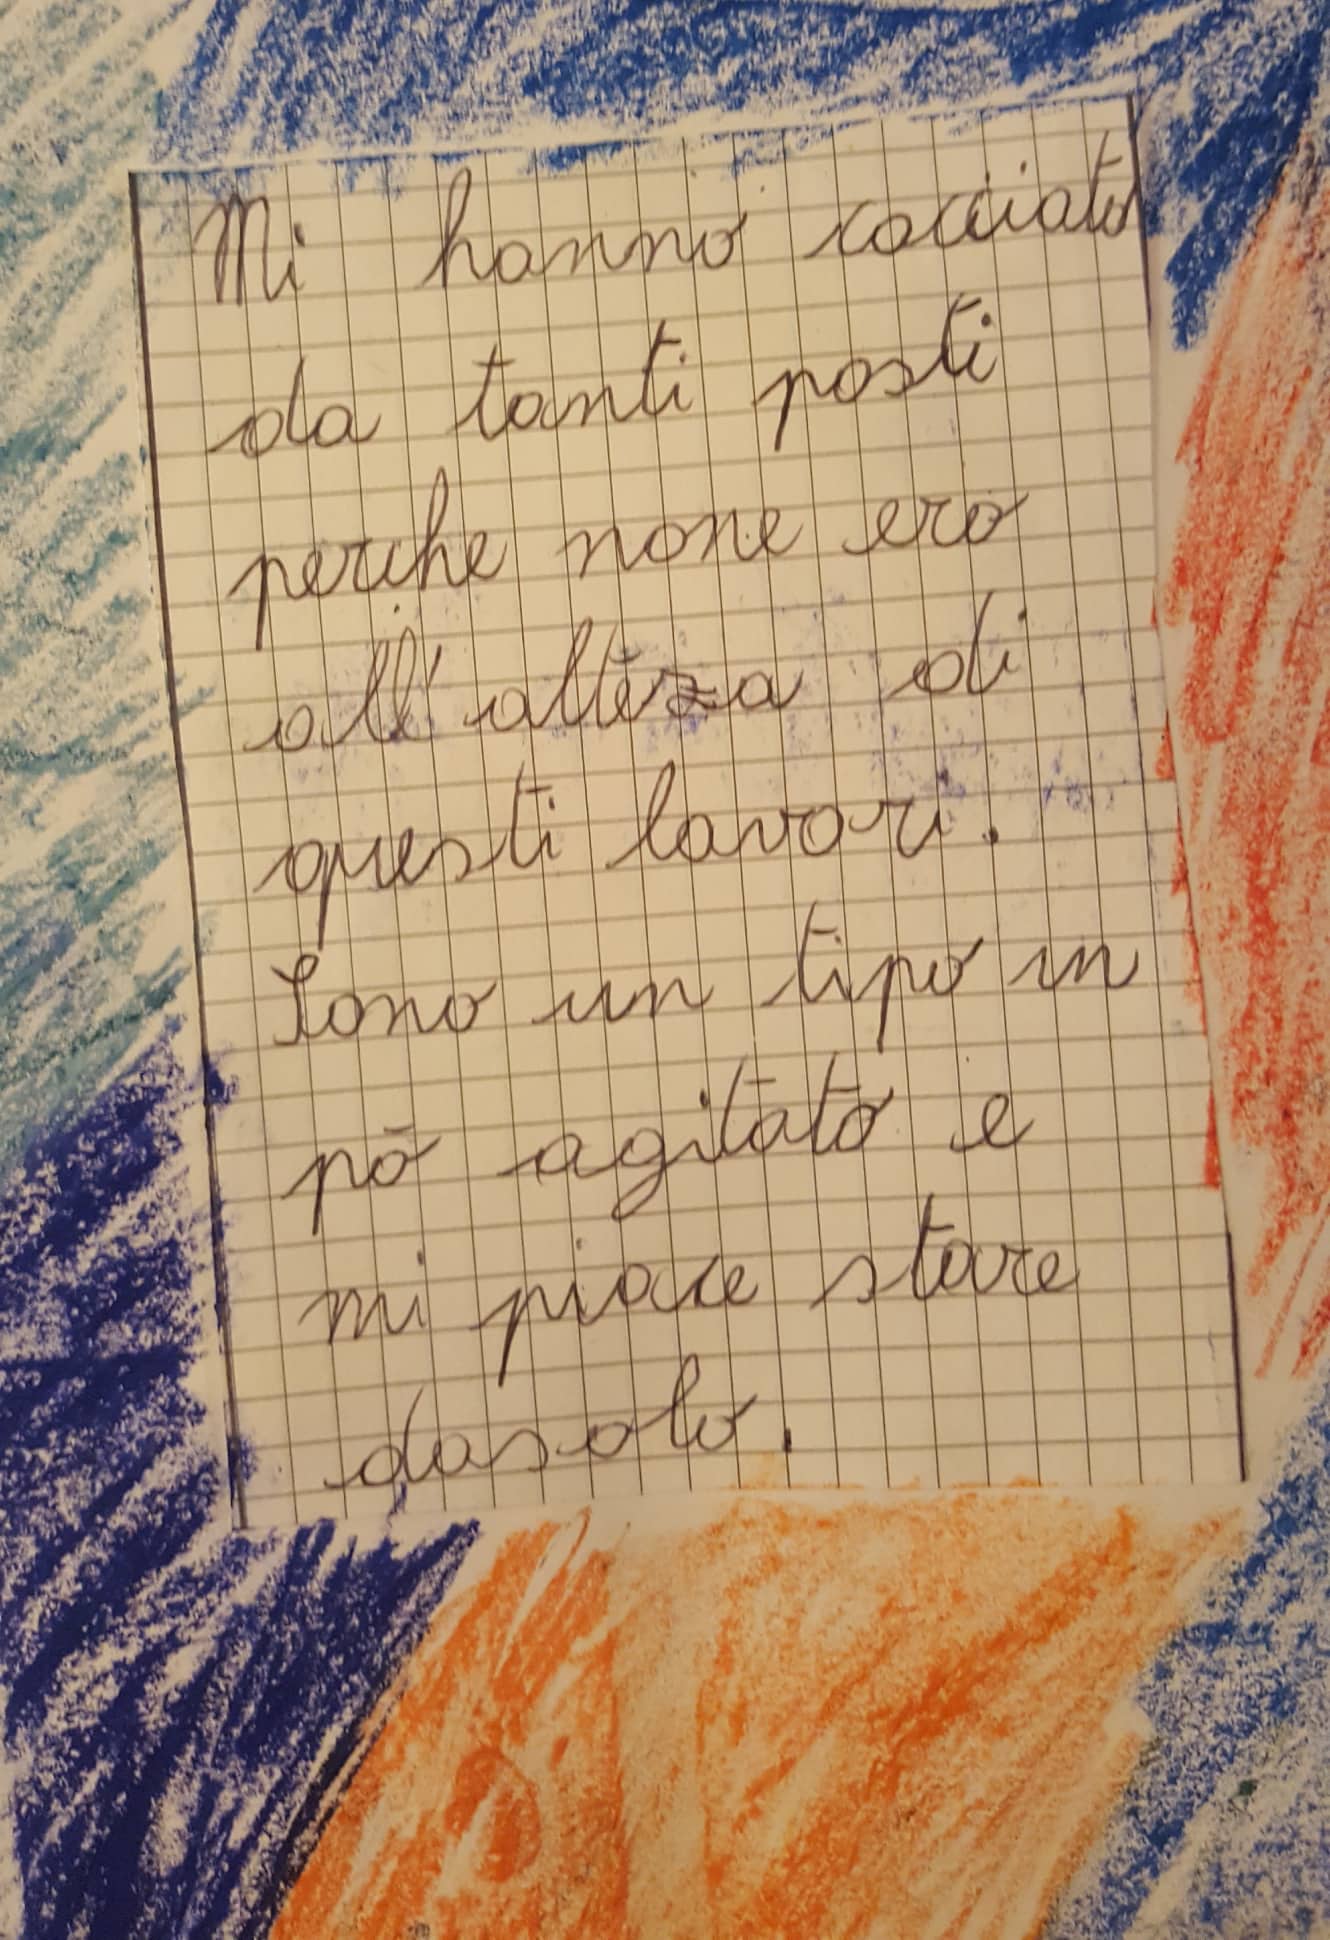 Mi hanno cacciato
da tanti posti
perche none ero
all'alteza di
questi lavori.
Sono un tipo un
pō agitato e
mi piace stare
dasolo.